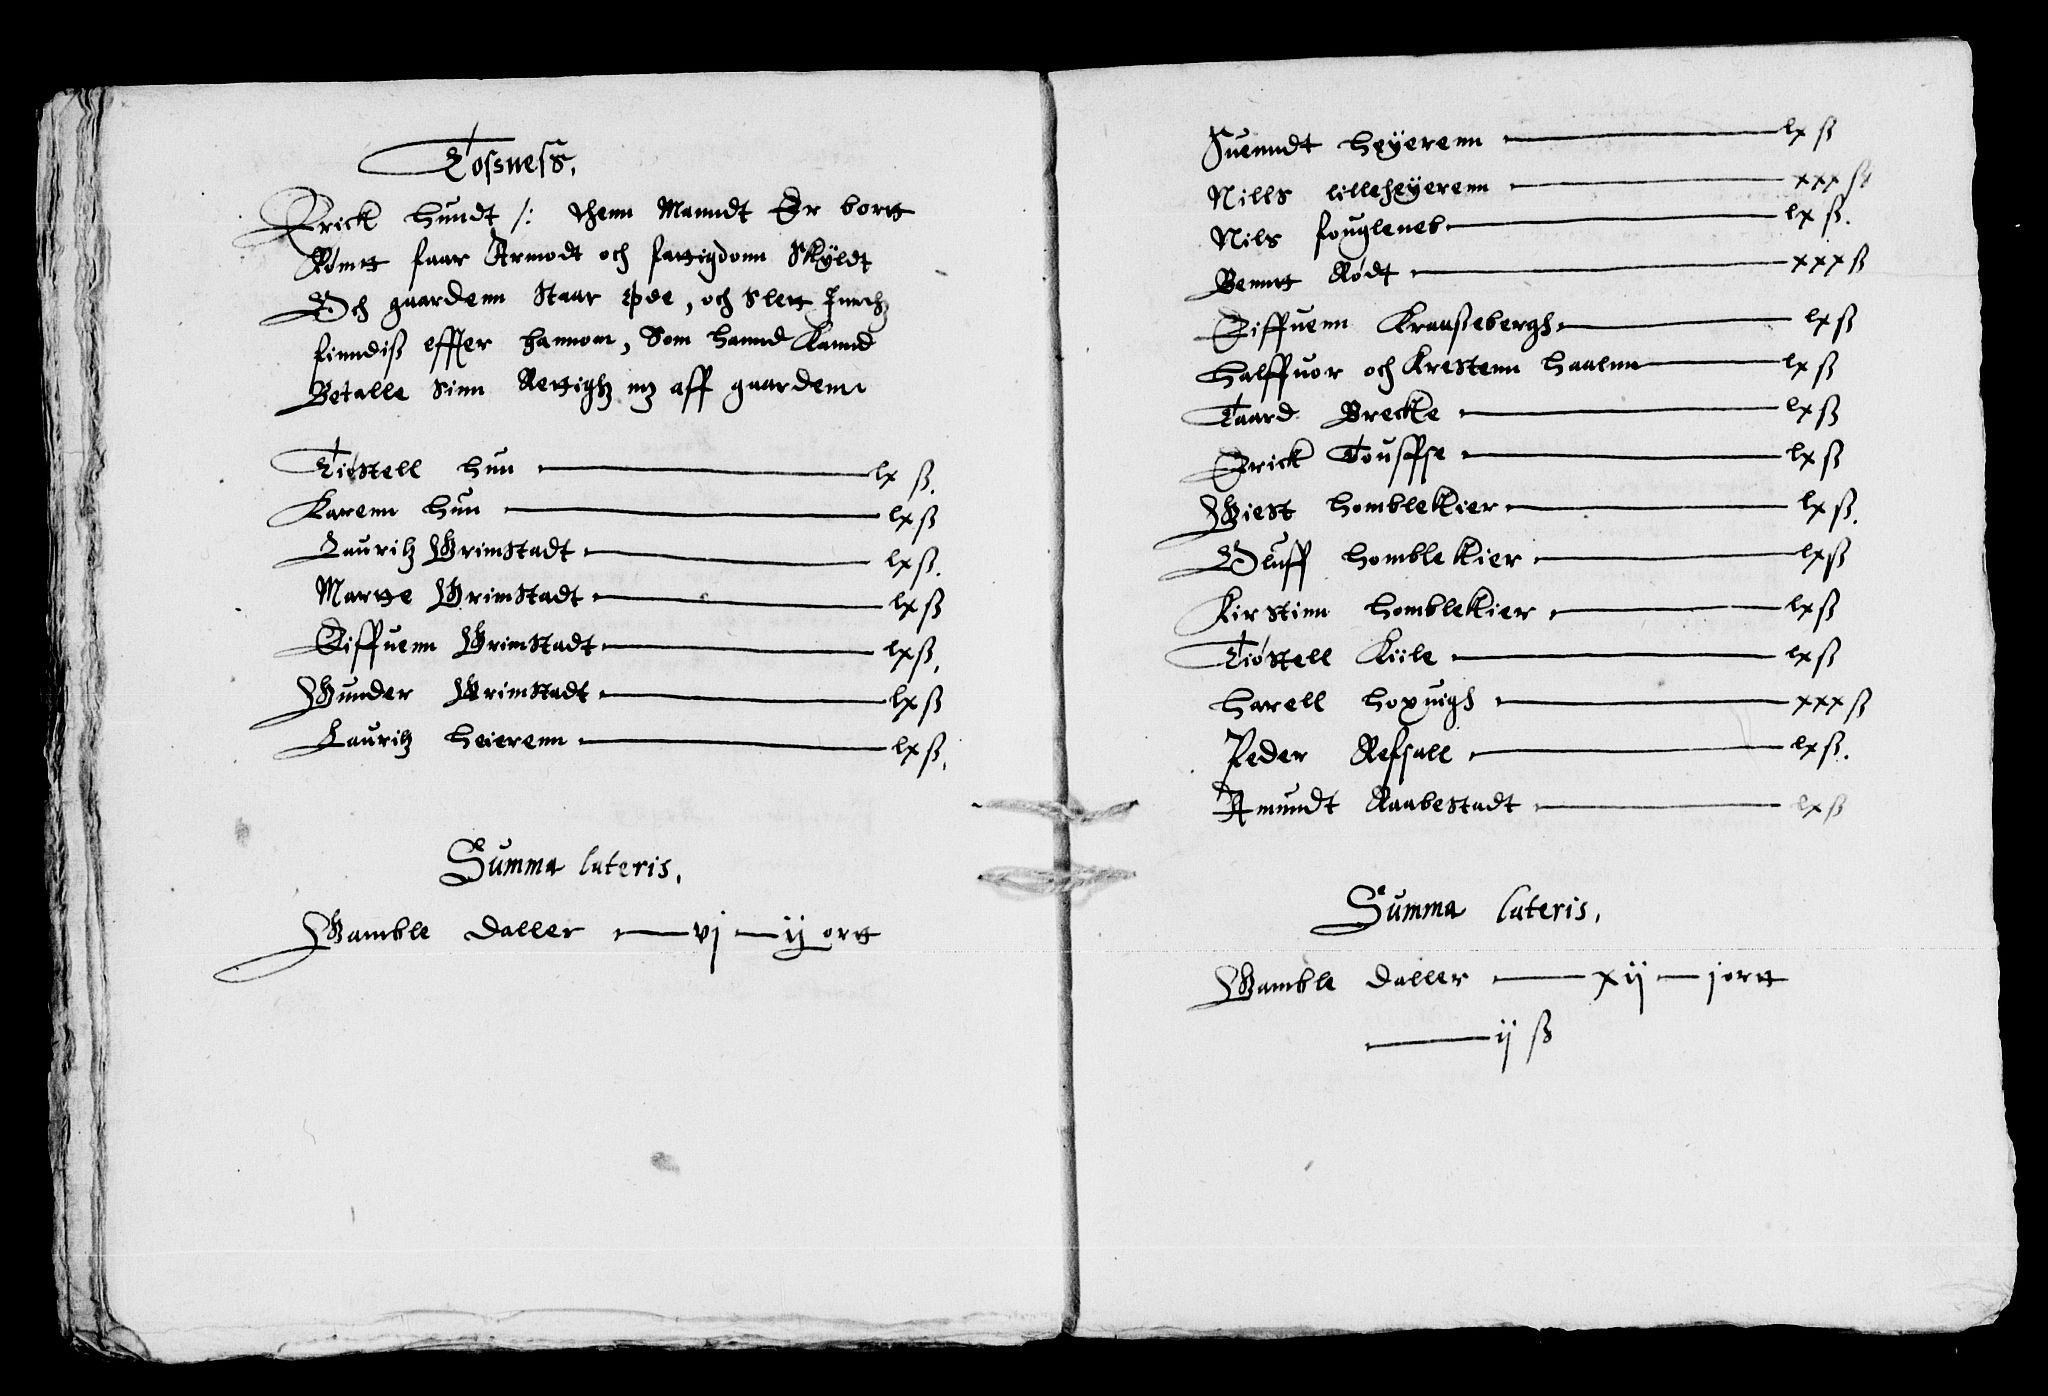 Tossness,
Erick Hundt /: Thenn Manndt Er bortt
Römtt faar Armodt och fattigdom Skÿldt
Och gaardenn Staar øde, och Slett Inttz
finndiß effter hannom, Som hannd Kannd
Betalle Sinn Rettighz mz aff gaardenn
Tiøstell Hun — lx ß.
Karenn Hun — lx ß
Lauritz Grimstadt — lx ß.
Martte Grimstadt — lx ß
Eiffuenn Grimstadt — lx ß,
Gunder Grimstadt — lx ß
Lauritz Heierenn — lx ß,
Summa lateris,
Gamble Daller — vj — ij ortt
Suenndt Heÿerenn — lx ß
Nills lilleheÿerenn — xxx ß
Nils fougleneb — lx ß.
Benntt Rødt — xxx ß
Eiffuenn Kraaßebergh — lx ß
Halffuor och Krestenn Haalnn — lx ß
Taard Brecke — lx ß
Erick Tousffse — lx ß
Giest Homblekier — lx ß.
Oluff Homblekier — lx ß
Kirstinn Homblekier — lx ß
Tiøstell Kiile — lx ß
Harell Hopuigh — xxx ß
Peder Refsall — lx ß.
Amundt Raabestadt — lx ß
Summa lateris,
Gamble Daller — xij — j ortt
— ij ß